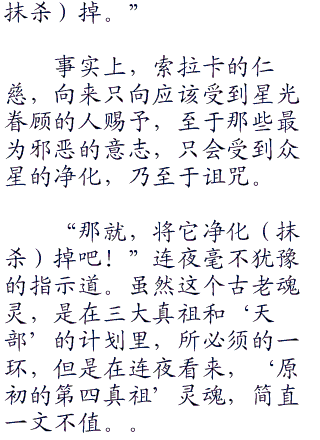 抹杀）掉。”
事实上，索拉卡的仁
慈，向来只向应该受到星光
眷顾的人赐予，至于那些最
为邪恶的意志，只会受到众
星的净化，乃至于诅咒。
“那就，将它净化（抹
杀）掉吧！”连夜毫不犹豫
的指示道。虽然这个古老魂
灵，是在三大真祖和‘天
部’的计划里，所必须的一
环，但是在连夜看来，‘原
初的第四真祖’灵魂，简直
一文不值。。